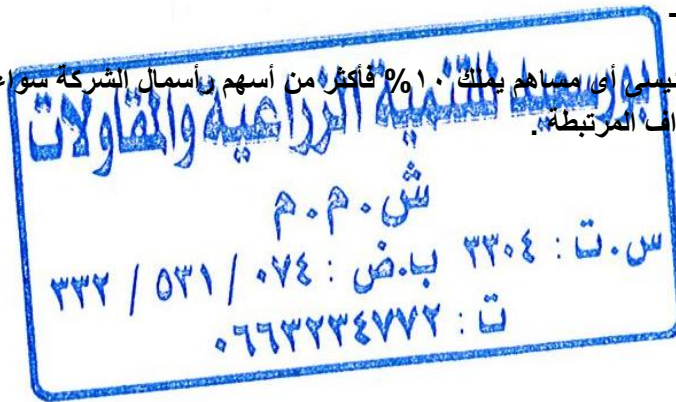 -
يسى أى مساهم يملك ١٠% فأكثر من أسهم رأسمال الشركة سواء
اف المرتبطة .
بورسعيد للتنمية الزراعية والمقاولات
ش.م.م
س.ت : ٣٣٠٤ ب.ض : ٠٧٤ / ٥٣١ / ٣٣٢
ت : ٠٦٦٣٢٣٤٧٧٢